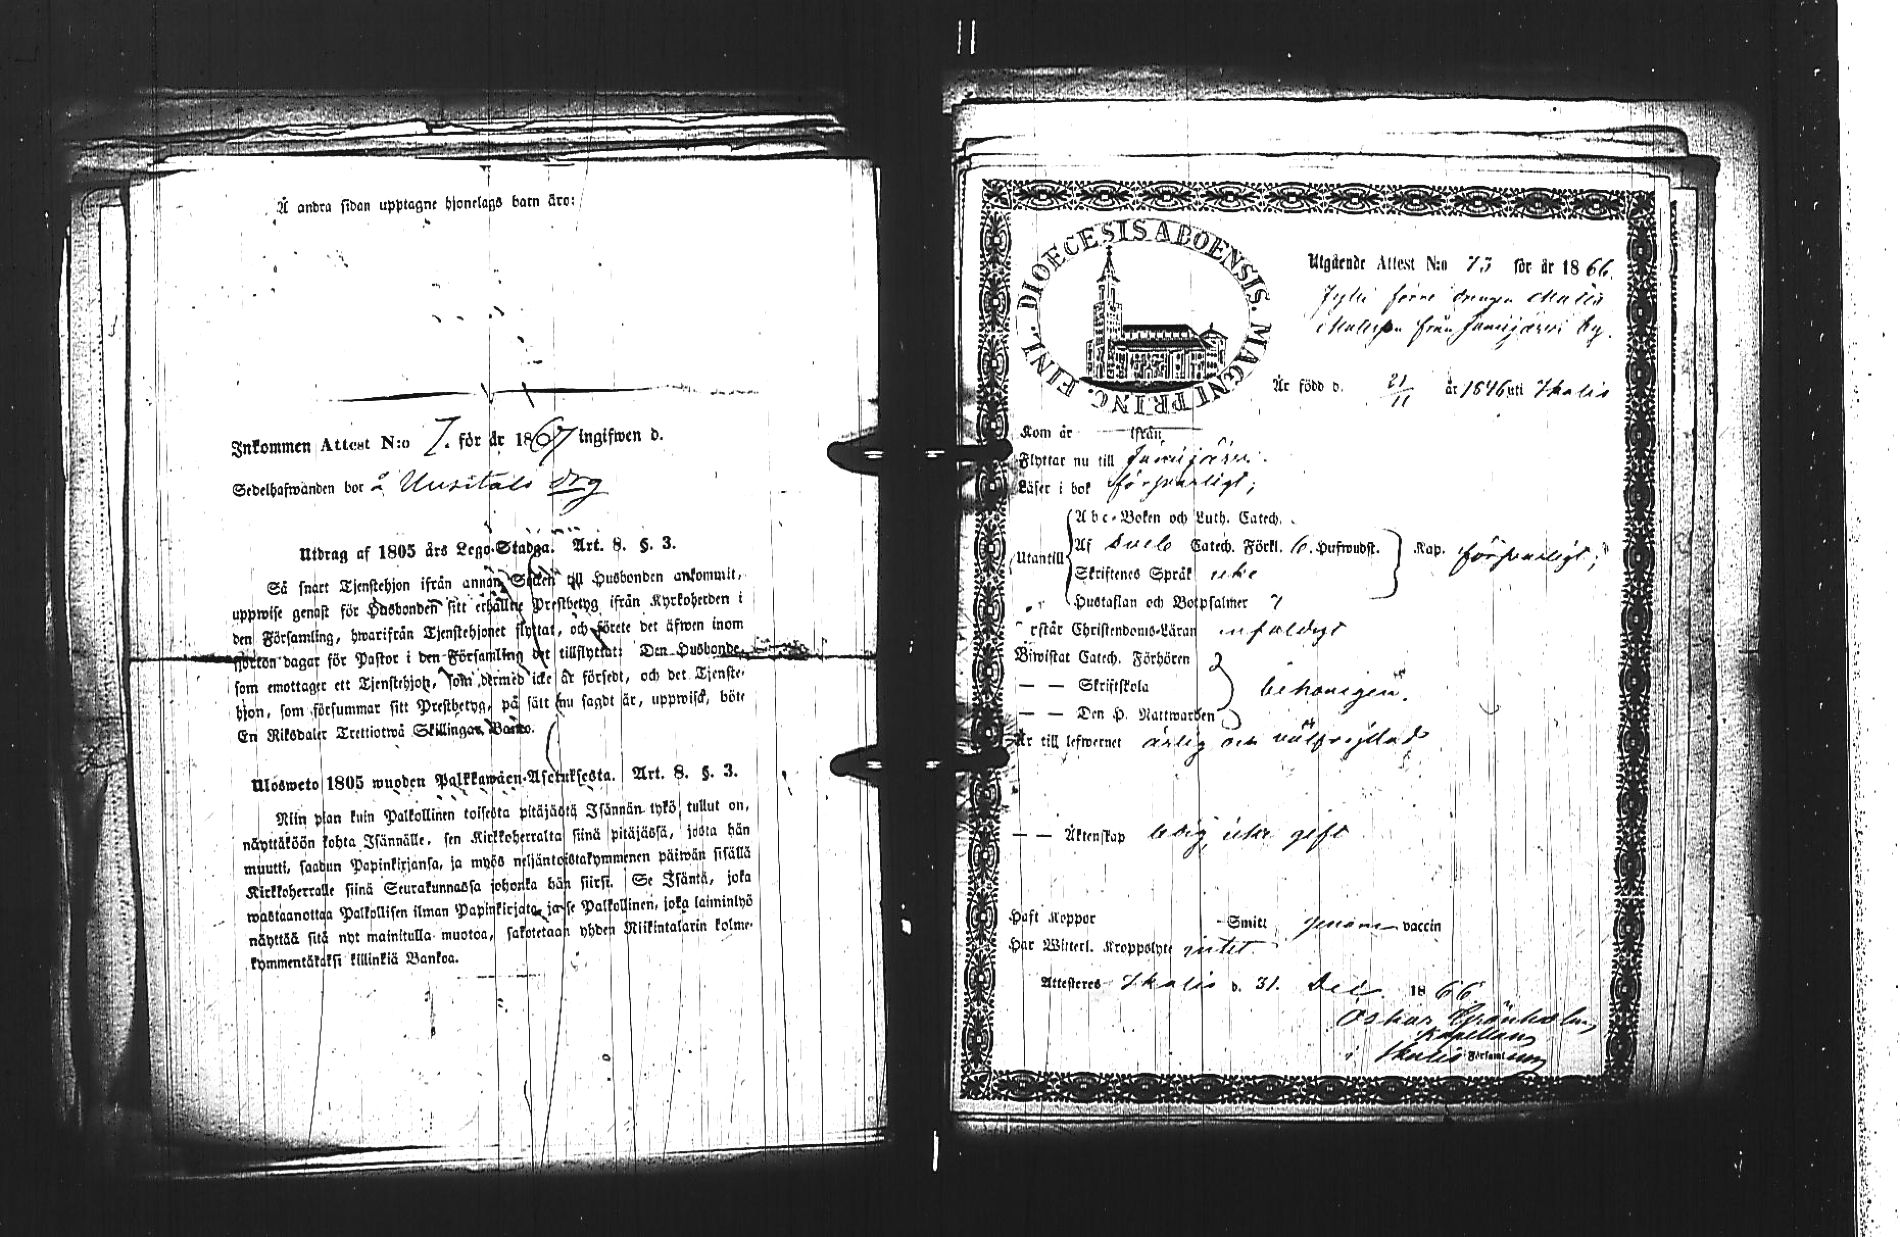 Å andra sidan upptagne hjonelags barn äro:
Inkommen Attest N:o 7. för år 1867 ingifwen d.
Sedelhafwanden bor å Uusitalo
Utdrag af 1805 års Lego-Stadga. Art. 8. §. 3.
Så snart Tjenstehjon ifrån annan Socken till Husbonden ankommit,
uppwise genast för Husbonden sitt erhållne Prestbetyg ifrån Kyrkoherden i
den Församling, hwarifrån Tjenstehjonet flyttat, och förete det äfwen inom
fjorton dagar för Pastor i den Församling det tillflyttat: Den Husbonde,
som emottager ett Tjenstehjon, som dermed icke är försedt, och det Tjenste-
hjon, som försummar sitt Prestbetyg, på sätt nu sagdt är, uppwisa, böte
En Riksdaler Trettiotwå Skillingar Banko.
Ulosweto 1805 wuoden Palkkawäen-Asetuksesta. Art. 8. §. 3.
Niin pian kuin Palkollinen toisesta pitäjästä Isännän tykö tullut on,
näyttäköön kohta Isännälle, sen Kirkkoherralta siinä pitäjässä, josta hän
muutti, saadun Papinkirjansa, ja myös neljäntoistakymmenen päiwän sisällä
Kirkkoherralle siinä Seurakunnassa johonka hän siirsi. Se Isäntä, joka
wastaanottaa Palkollisen ilman Papinkirjata, ja se Palkollinen, joka laiminlyö
näyttää sitä nyt mainitulla muotoa, sakotetaan yhden Riikintalarin kolme-
kymmentäkaksi killinkiä Bankoa.
DIOECESIS ABOENSIS. MAGNI PRINC. FINL.
Utgående Attest N:o 73 för år 1866.
förre drengen Matts
Mattsson från Jämijärvi by.
Är född d. 21/11 år 1846 uti Ikalis
Kom år ifrån
Flyttar nu till Jämijärvi.
Läser i bok försvarligt;
Utantill
Abc-Boken och Luth. Catech.
Af Svebc Catech. Förkl. 6. Hufwudst. Kap. försvarligt;
Skriftenes Språk icke
Hustaflan och Botpsalmer 7
rstår Christendoms-Läran enfaldigt
Biwistat Catech. Förhören
— — Skriftskola behörigen.
— — Den H. Nattwarden
Är till lefwernet ärlig och välfrejdad
— — Äktenskap ledig, icke gift
Haft Koppor Smitt genom vaccin
Har Witterl. Kroppslyte intet.
Attesteras Ikalis d. 31. Dec. 1866
Oskar Grönholm
Kapellan
i Ikalis Församl